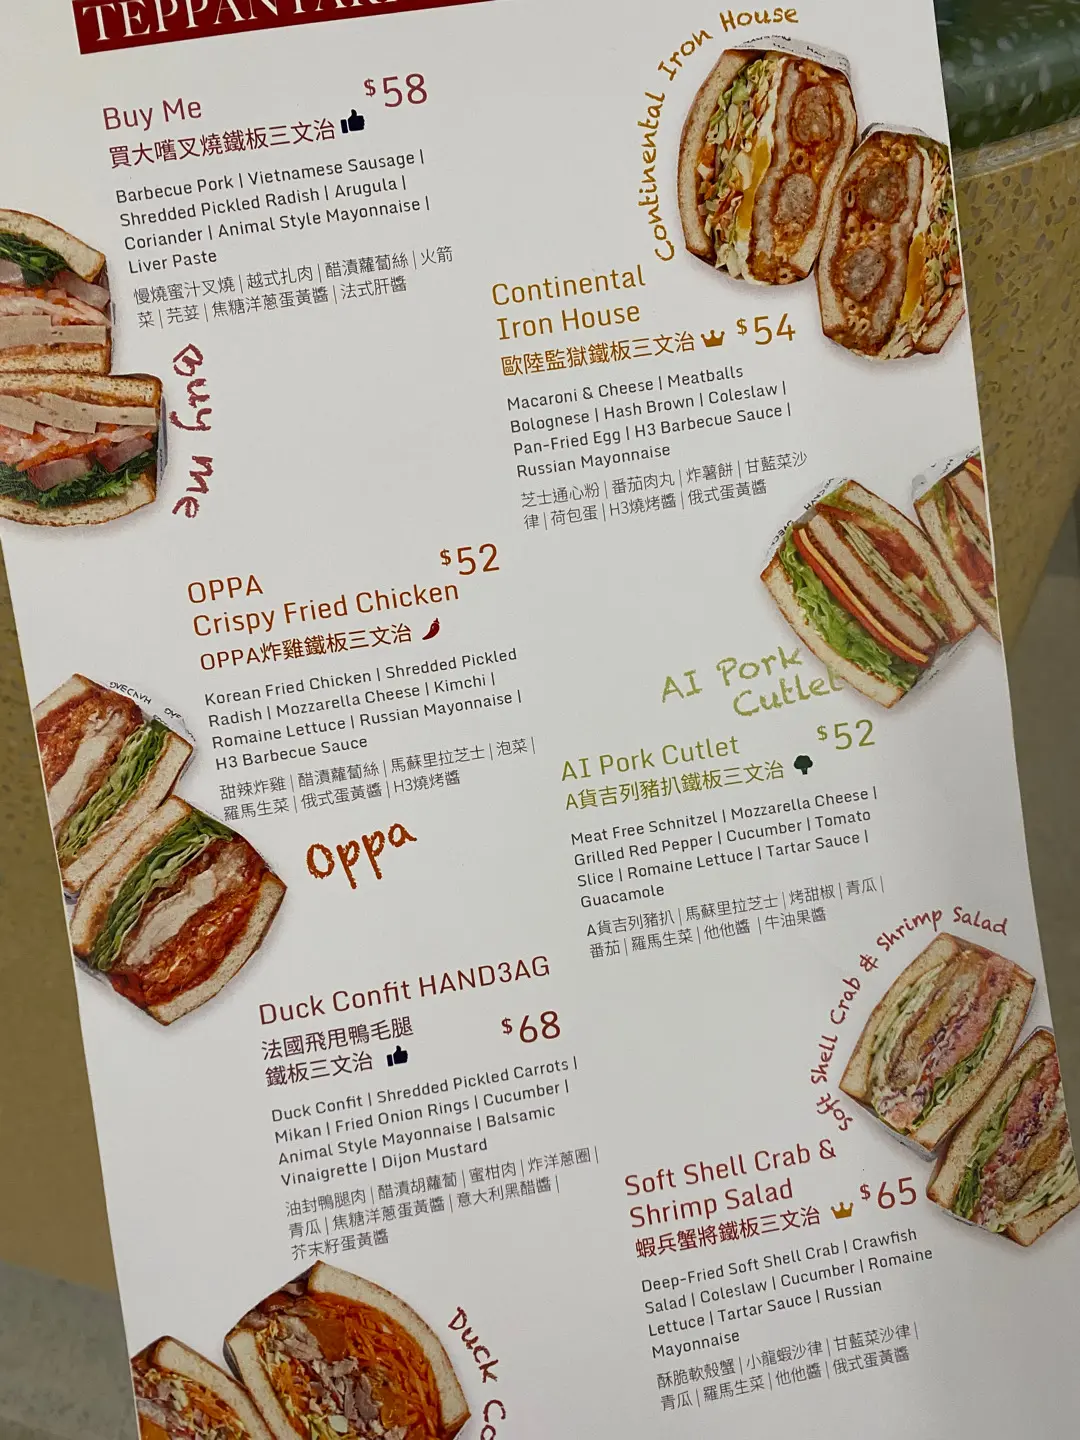 Buy Me
$58
買大嚿叉燒鐵板三文治
Barbecue Pork | Vietnamese Sausage |
Shredded Pickled Radish | Arugula |
Coriander | Animal Style Mayonnaise |
Liver Paste
慢燒蜜汁叉燒 | 越式扎肉 | 醋漬蘿蔔絲 | 火箭
菜 | 芫荽 | 焦糖洋蔥蛋黃醬 | 法式肝醬
Buy Me
Continental Iron House
Continental
Iron House
歐陸監獄鐵板三文治
$54
Macaroni & Cheese | Meatballs
Bolognese | Hash Brown | Coleslaw |
Pan-Fried Egg | H3 Barbecue Sauce |
Russian Mayonnaise
芝士通心粉 | 番茄肉丸 | 炸薯餅 | 甘藍菜沙
律 | 荷包蛋 | H3燒烤醬 | 俄式蛋黃醬
OPPA
$52
Crispy Fried Chicken
OPPA炸雞鐵板三文治
Korean Fried Chicken | Shredded Pickled
Radish | Mozzarella Cheese | Kimchi |
Romaine Lettuce | Russian Mayonnaise |
H3 Barbecue Sauce
甜辣炸雞 | 醋漬蘿蔔絲 | 馬蘇里拉芝士 | 泡菜 |
羅馬生菜 | 俄式蛋黃醬 | H3燒烤醬
Oppa
AI Pork
Cutlet
AI Pork Cutlet
$52
A貨吉列豬扒鐵板三文治
Meat Free Schnitzel | Mozzarella Cheese |
Grilled Red Pepper | Cucumber | Tomato
Slice | Romaine Lettuce | Tartar Sauce |
Guacamole
A貨吉列豬扒 | 馬蘇里拉芝士 | 烤甜椒 | 青瓜 |
番茄 | 羅馬生菜 | 他他醬 | 牛油果醬
Duck Confit HAND3AG
法國飛甩鴨毛腿
鐵板三文治
$68
Duck Confit | Shredded Pickled Carrots |
Mikan | Fried Onion Rings | Cucumber |
Animal Style Mayonnaise | Balsamic
Vinaigrette | Dijon Mustard
油封鴨腿肉 | 醋漬胡蘿蔔 | 蜜柑肉 | 炸洋蔥圈 |
青瓜 | 焦糖洋蔥蛋黃醬 | 意大利黑醋醬 |
芥末籽蛋黃醬
Duck
Soft Shell Crab & Shrimp Salad
Soft Shell Crab &
Shrimp Salad
蝦兵蟹將鐵板三文治
$65
Deep-Fried Soft Shell Crab | Crawfish
Salad | Coleslaw | Cucumber | Romaine
Lettuce | Tartar Sauce | Russian
Mayonnaise
酥脆軟殼蟹 | 小龍蝦沙律 | 甘藍菜沙律 |
青瓜 | 羅馬生菜 | 他他醬 | 俄式蛋黃醬